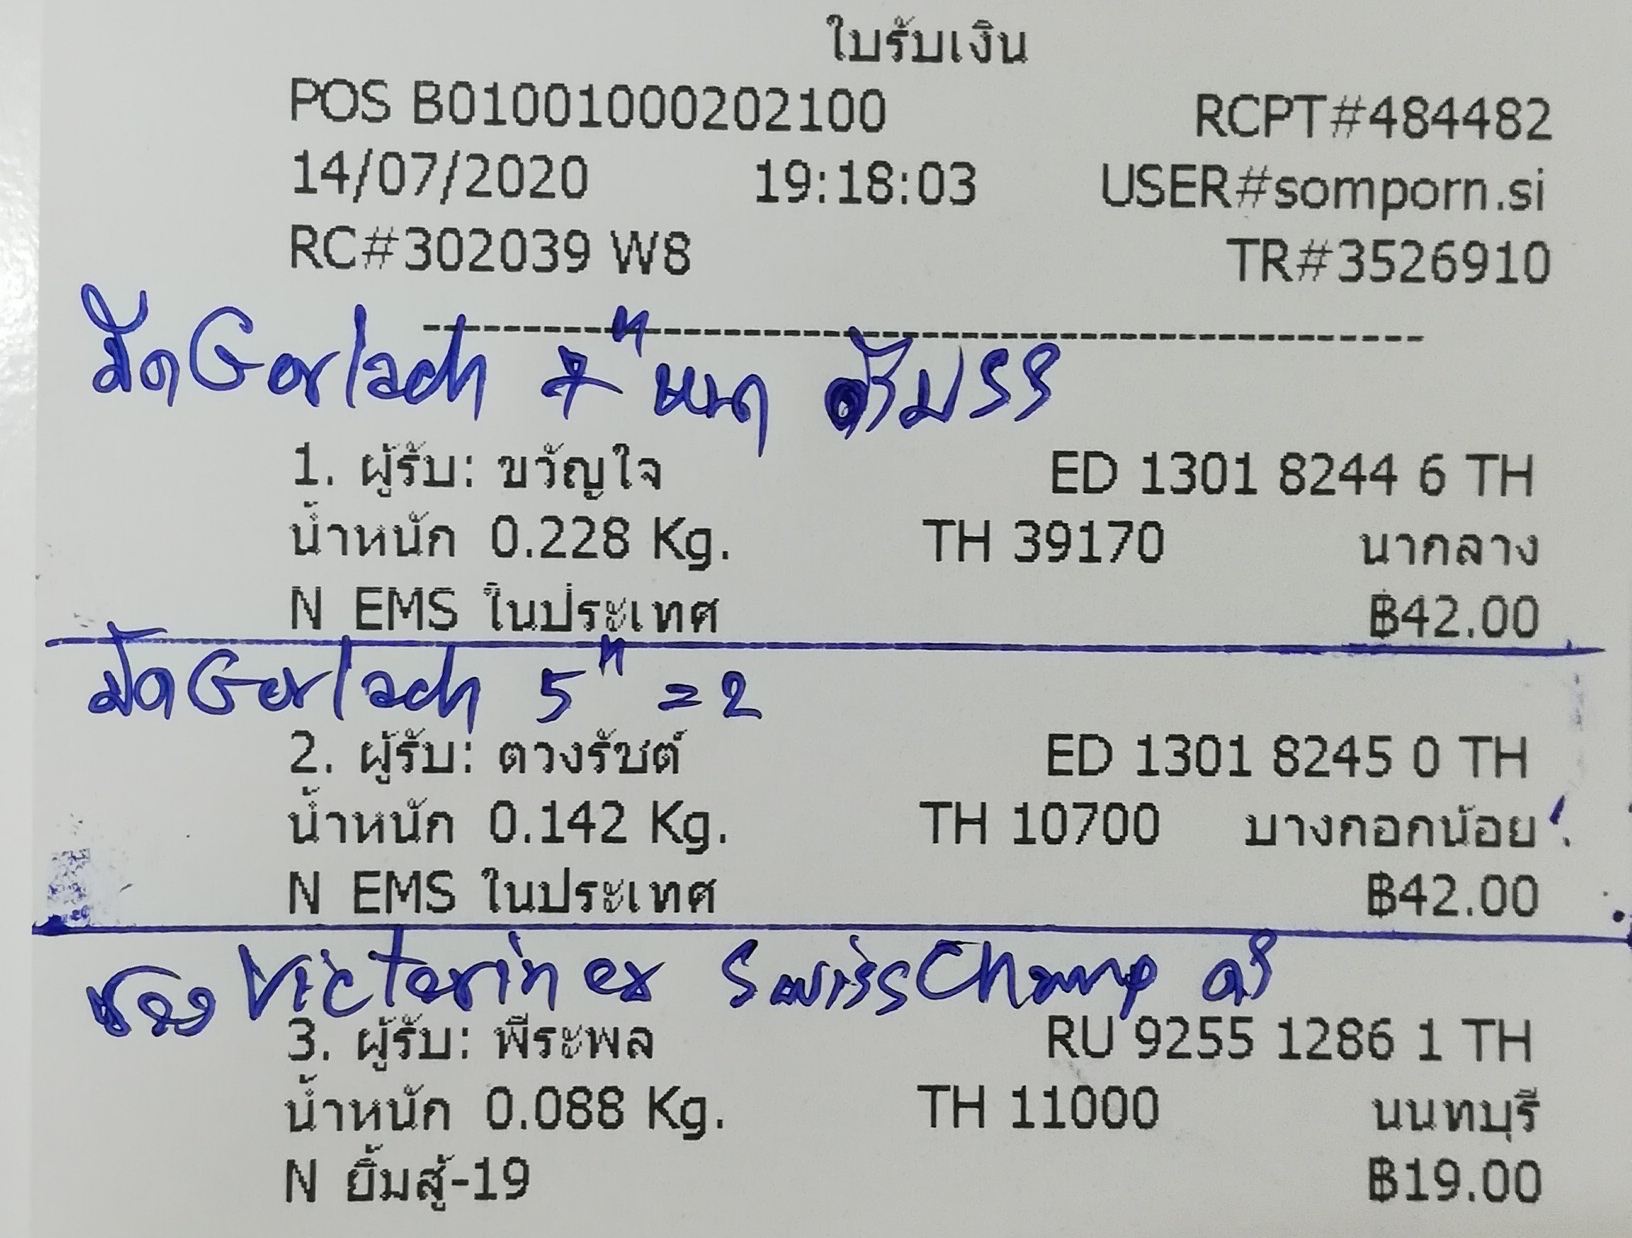 ใบรับเงิน
POS B01001000202100 RCPT#484482
14/07/2020 19:18:03 USER#somporn.si
RC#302039 W8 TR#3526910
--------------------------------------------------
มีด Gerlach 7" หนา ด้าม
1. ผู้รับ: ขวัญใจ ED 1301 8244 6 TH
น้ำหนัก 0.228 Kg. TH 39170 นากลาง
N EMS ในประเทศ ฿42.00
มีด Gerlach 5" = 2
2. ผู้รับ: ตวงรัชต์ ED 1301 8245 0 TH
น้ำหนัก 0.142 Kg. TH 10700 บางกอกน้อย
N EMS ในประเทศ ฿42.00
ซอง Victorinox SwissChamp
3. ผู้รับ: พีระพล RU 9255 1286 1 TH
น้ำหนัก 0.088 Kg. TH 11000 นนทบุรี
N ยิ้มสู้-19 ฿19.00